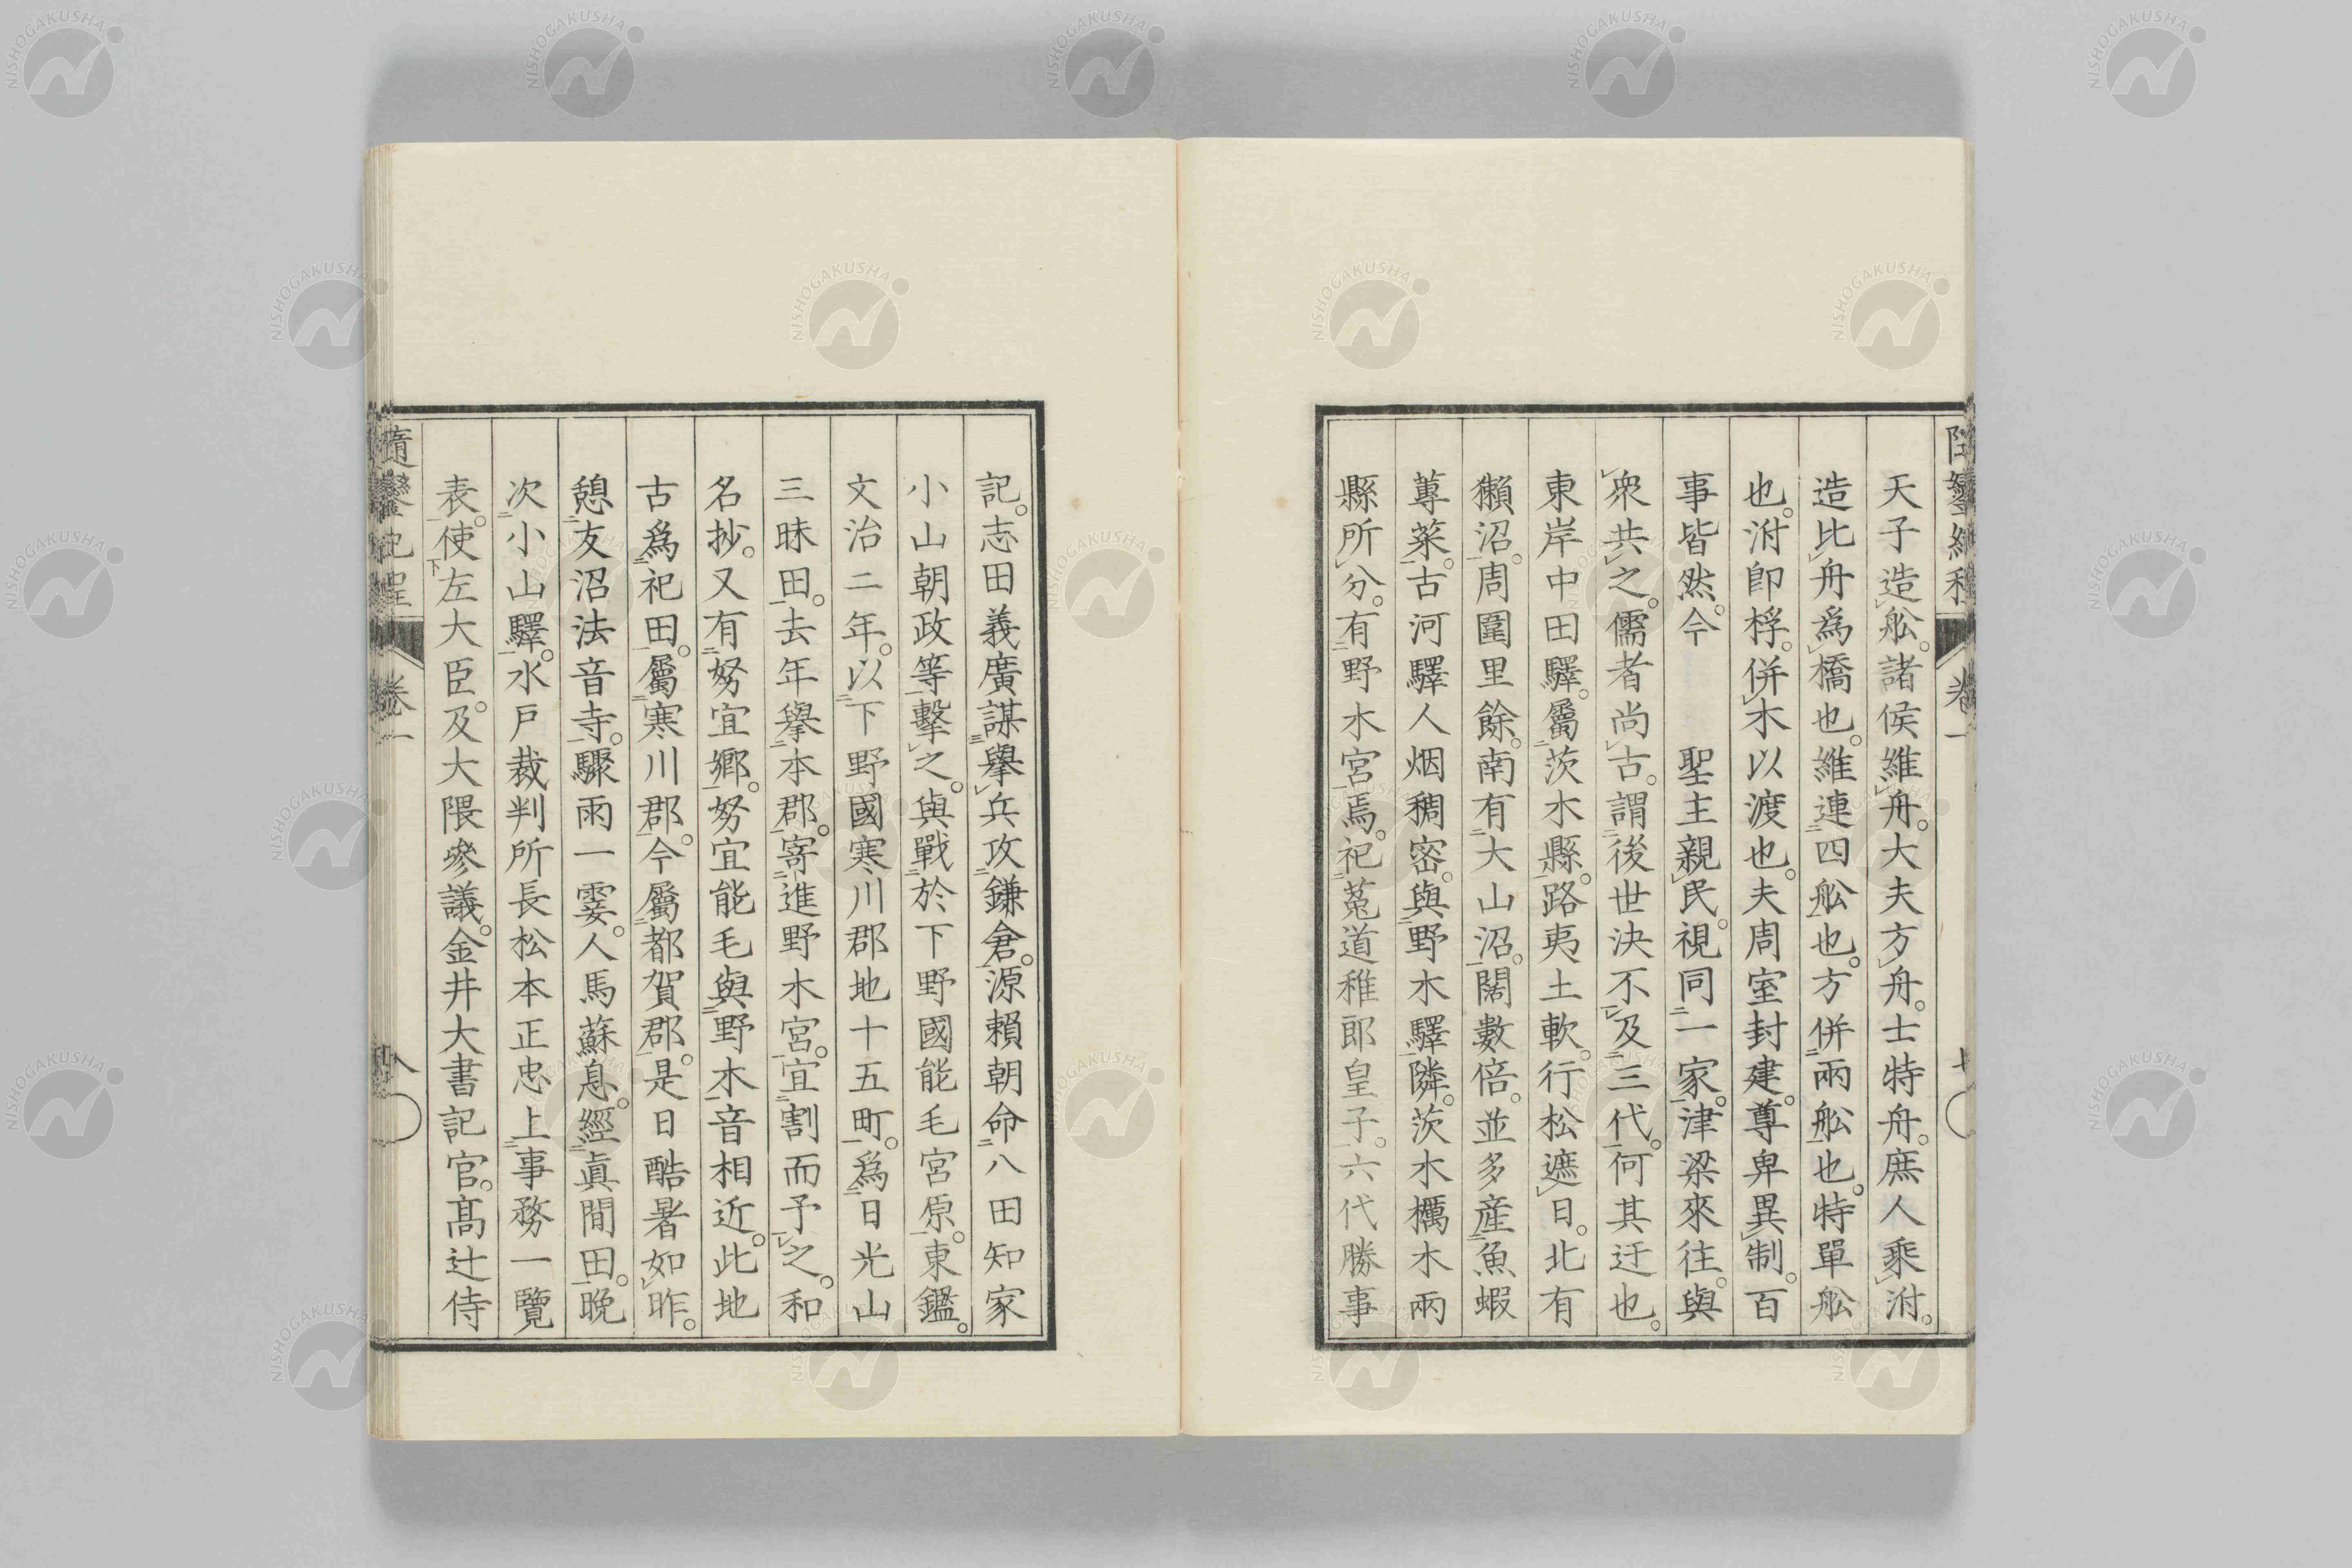 天子造舩。諸侯維舟。大夫方舟。士特舟。庶人乘泭。
造比舟爲橋也。維連四舩也。方併兩舩也。特單舩
也。泭卽桴。併木以渡也。夫周室封建。尊卑異制。百
事皆然。今　　聖主親民。視同一家。津梁來往。與
衆共之。儒者尚古。謂後世決不及三代。何其迂也。
東岸中田驛。屬茨木縣。路夷土軟。行松遮日。北有
獺沼。周圍里餘。南有大山沼。闊數倍。並多産魚蝦
蓴菜。古河驛人烟稠密。與野木驛隣。茨木櫔木兩
縣所分。有野木宮焉。祀菟道稚郎皇子。六代勝事
記。志田義廣謀擧兵攻鎌倉。源賴朝命八田知家
小山朝政等擊之。與戰於下野國能毛宮原。東鑑。
文治二年。以下野國寒川郡地十五町。爲日光山
三昧田。去年擧本郡。寄進野木宮。宜割而予之。和
名抄。又有努宜郷。努宜能毛與野木音相近。此地
古爲祀田。屬寒川郡。今屬都賀郡。是日酷暑如昨。
憩友沼法音寺。驟雨一霎。人馬蘇息。經眞間田。晩
次小山驛。水戶裁判所長松本正忠上事務一覽
表。使左大臣。及大隈參議。金井大書記官。髙辻侍
隨鑾紀程
卷一
八